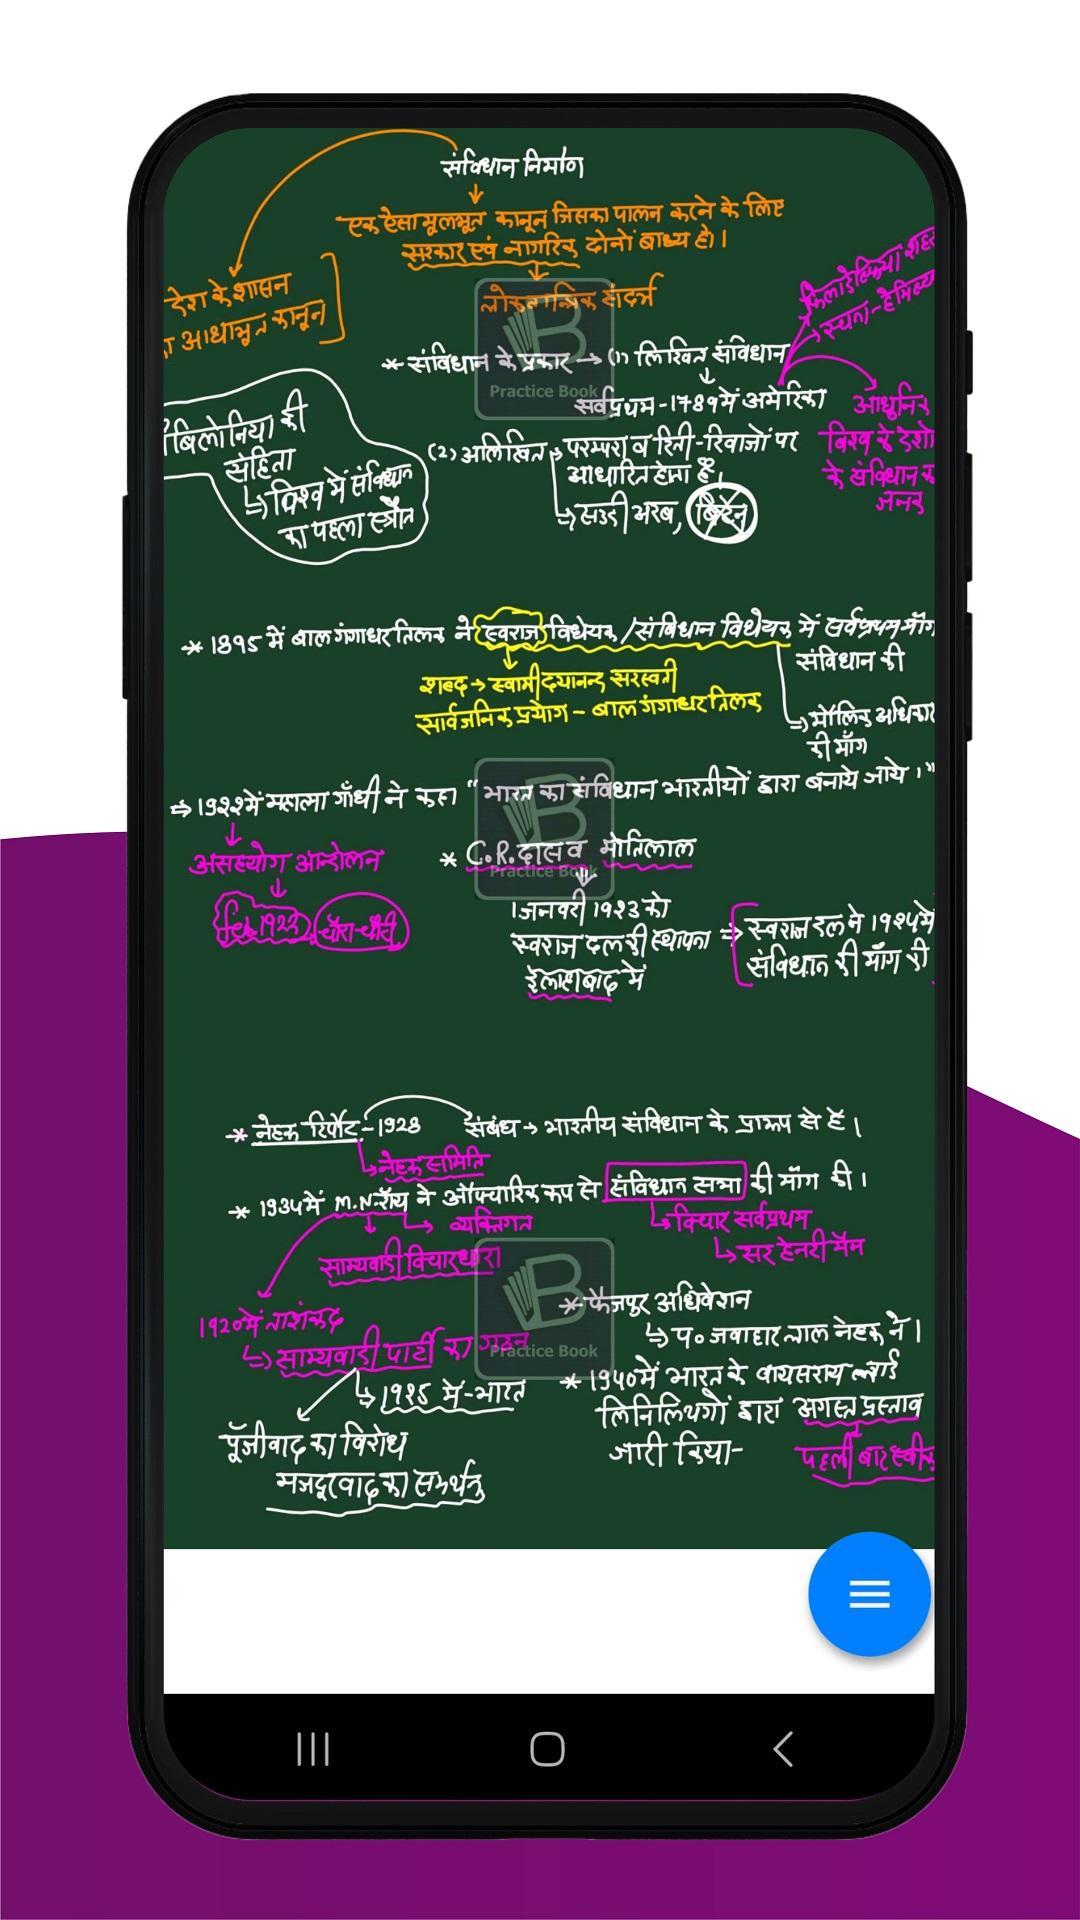 संविधान निर्माण
एक ऐसा मूलभूत कानून जिसका पालन करने के लिए
सरकार एवं नागरिक दोनों बाध्य हो।
देश के शासन
आधाभूत कानून
लोकतान्त्रिक संदर्भ
फिलाडेल्फिया शहर
* संविधान के प्रकार → (1) लिखित संविधान
सर्वप्रथम - 1789 में अमेरिका
आधुनिक
विश्व के देशो
के संविधान का
जनक
(2) अलिखित → परम्परा व रिती-रिवाजों पर
आधारित होता है,
↳ सउदी अरब, ब्रिटेन
बिलोनिया की
संहिता
↳ विश्व में संविधान
का पहला स्त्रौत
* 1895 में बाल गंगाधर तिलक ने स्वराज विधेयक / संविधान विधेयक में सर्वप्रथम माँग
संविधान की
शब्द → स्वामी दयानन्द सरस्वती
सार्वजनिक प्रयोग - बाल गंगाधर तिलक
↳ मौलिक अधिकार
की माँग
⇒ 1922 में महात्मा गाँधी ने कहा "भारत का संविधान भारतीयों द्वारा बनाये जाये।"
असहयोग आन्दोलन
feb 1922 चौरा-चौरी
* C.R. दास व मोतिलाल
1 जनवरी 1923 को
स्वराज दल की स्थापना
इलाहाबाद में
⇒ स्वराज दल ने 1924 में
संविधान की माँग की
* नेहरू रिर्पोट - 1928 संबंध → भारतीय संविधान के प्रारूप से हैं।
↳ नेहरू समिति
* 1934 में M.N. रॉय ने औपचारिक रूप से संविधान सभा की माँग की।
↳ व्यक्तिगत
साम्यवादी विचारधारा
↳ विचार सर्वप्रथम
↳ सर हेनरी मैम
1920 में ताशंकद
↳ साम्यवादी पार्टी का गठन
↳ 1925 में - भारत
पूँजीवाद का विरोध
मजदूरवाद का समर्थन
* फैजपुर अधिवेशन
↳ प० जवाहार लाल नेहरू ने।
* 1940 में भारत के वायसराय लार्ड
लिनिलिथगों द्वारा अगस्त प्रस्ताव
जारी किया-
पहली बार स्वीक
Practice Book
Practice Book
Practice Book